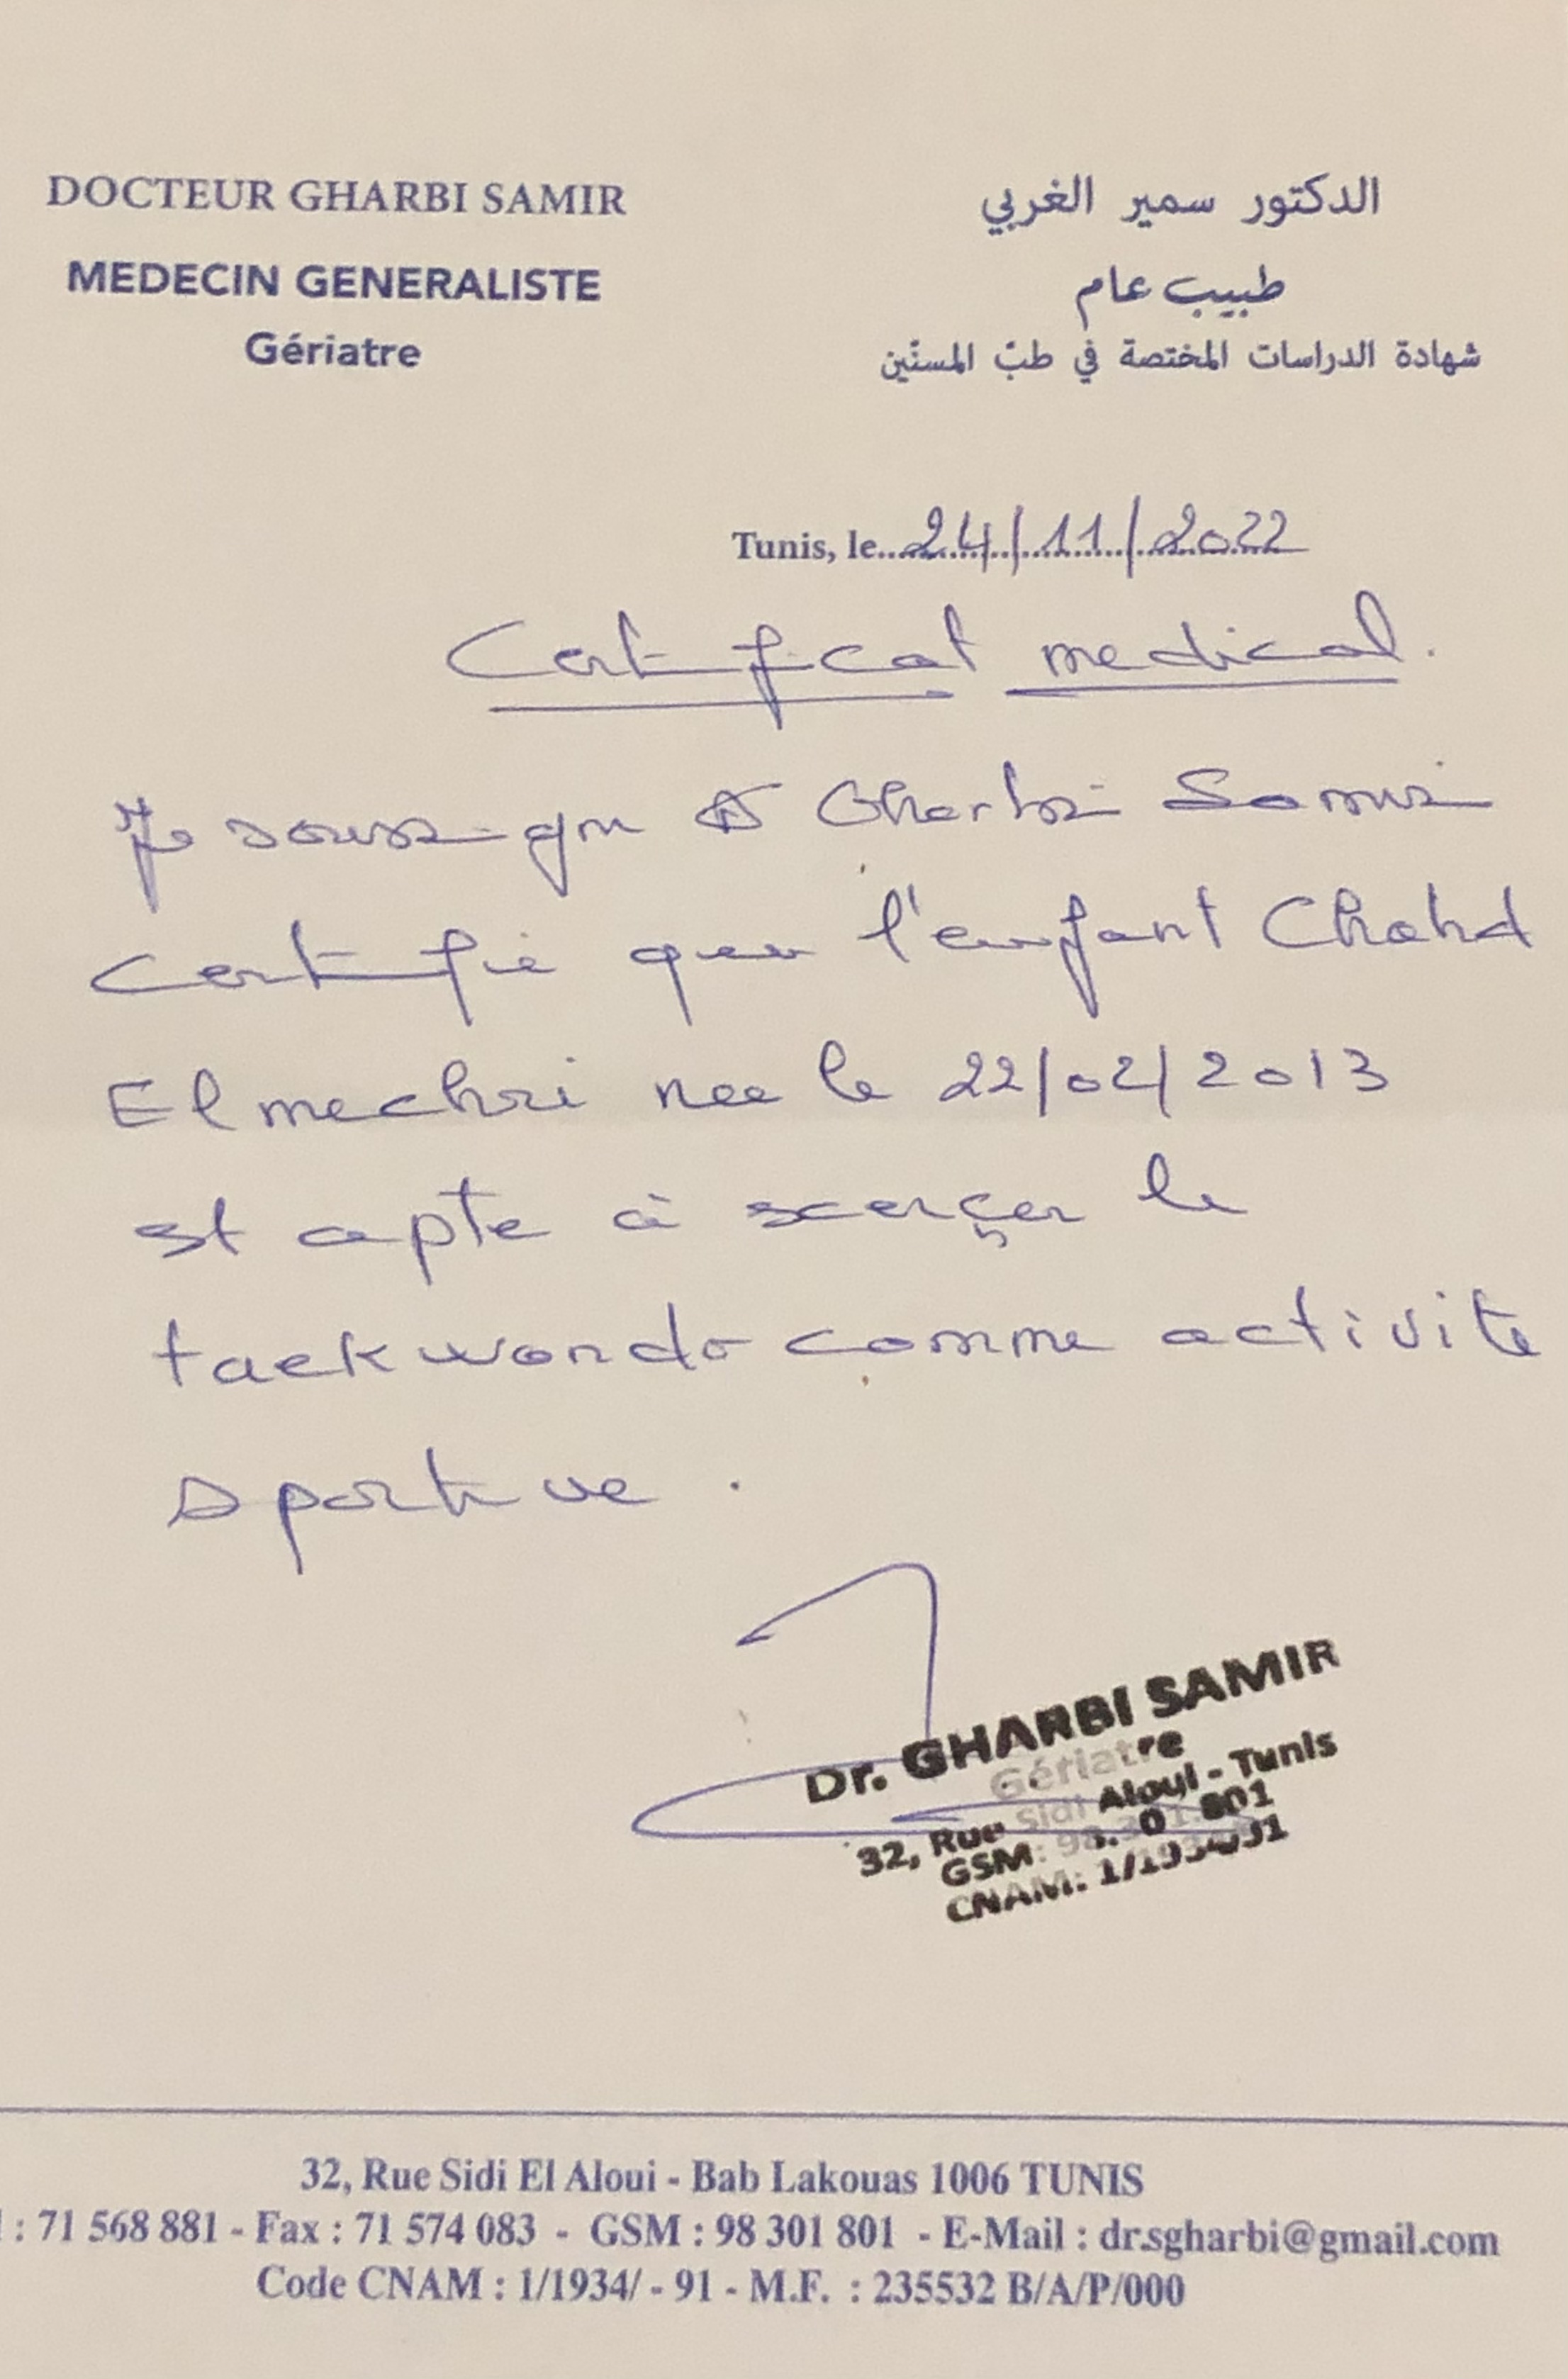 DOCTEUR GHARBI SAMIR
MEDECIN GENERALISTE
Gériatre
الدكتور سمير الغربي
طبيب عام
شهادة الدراسات المختصة في طبّ المسنّين
Tunis, le 24/11/2022
Certificat medical.
Je soussigne Dr Gharbi Samir
certifie que l'enfant Chahd
Elmechri nee le 22/02/2013
est apte à exerçer le
taekwondo comme activite
sportive.
Dr. GHARBI SAMIR
Gériatre
32, Rue Sidi Aloui - Tunis
GSM: 98.301.801
CNAM: 1/1934/91
32, Rue Sidi El Aloui - Bab Lakouas 1006 TUNIS
: 71 568 881 - Fax : 71 574 083 - GSM : 98 301 801 - E-Mail : dr.sgharbi@gmail.com
Code CNAM : 1/1934/ - 91 - M.F. : 235532 B/A/P/000